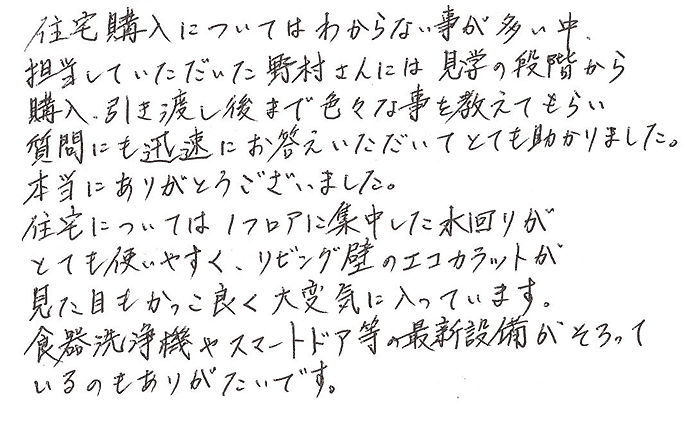 住宅購入についてはわからない事が多い中、
担当していただいた野村さんには見学の段階から
購入、引き渡し後まで色々な事を教えてもらい
質問にも迅速にお答えいただいてとても助かりました。
本当にありがとうございました。
住宅については1フロアに集中した水回りが
とても使いやすく、リビング壁のエコカラットが
見た目もかっこ良く大変気に入っています。
食器洗浄機やスマートドア等の最新設備がそろって
いるのもありがたいです。